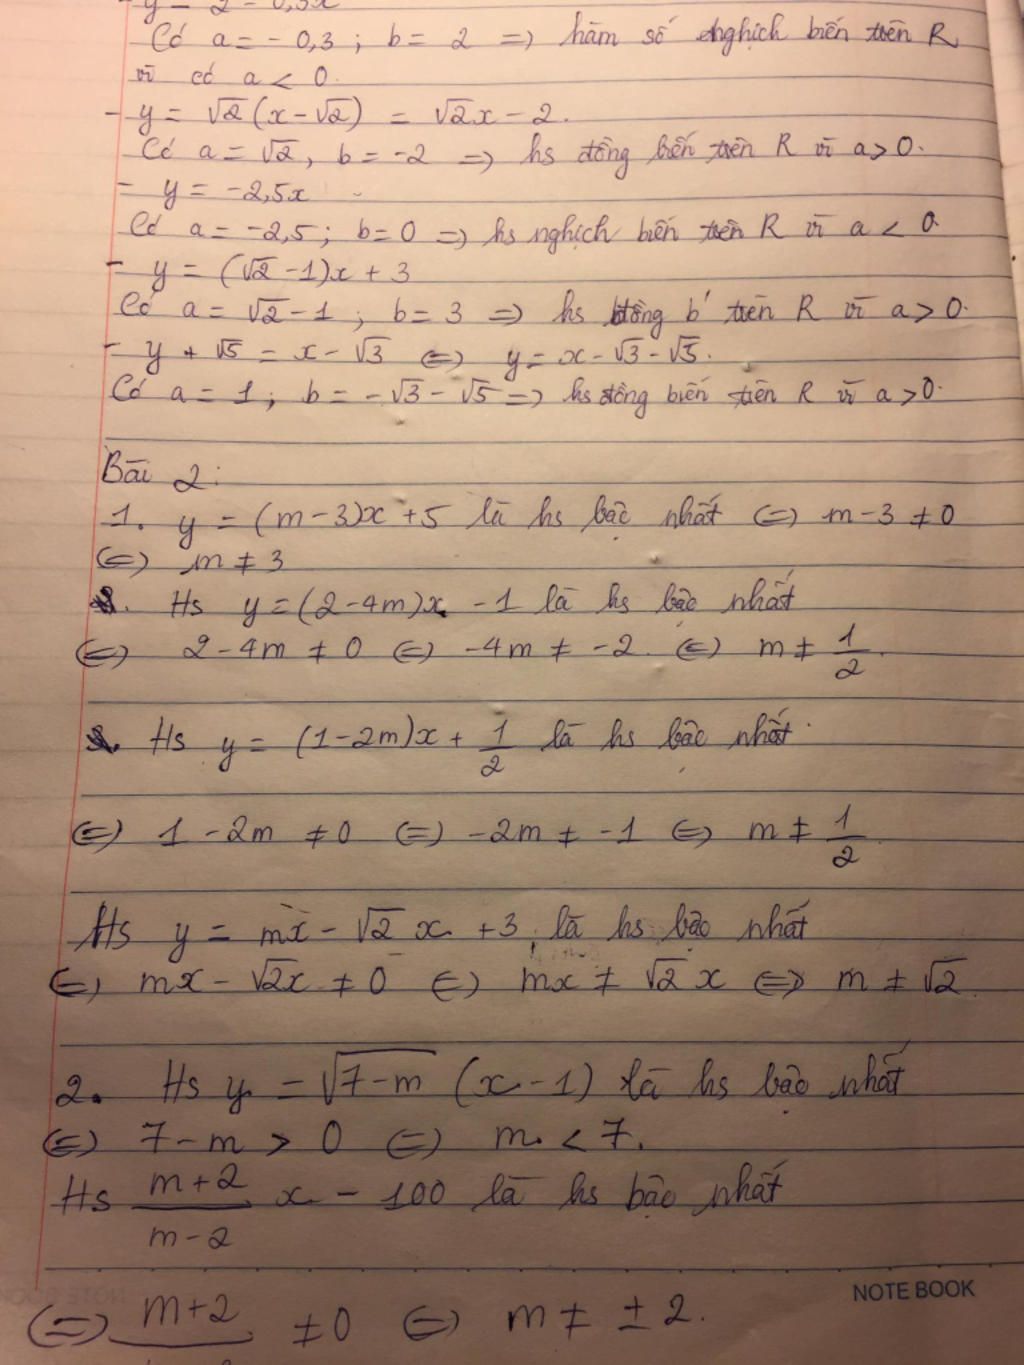 y = 2 - 0,3x
Có a = - 0,3 ; b = 2 => hàm số nghịch biến trên R
vì có a < 0.
- y = √2 (x - √2) = √2x - 2.
Có a = √2, b = -2 => hs đồng biến trên R vì a > 0.
- y = -2,5x
Có a = -2,5 ; b = 0 => hs nghịch biến trên R vì a < 0.
- y = (√2 - 1)x + 3
Có a = √2 - 1 ; b = 3 => hs đồng b' trên R vì a > 0.
- y + √5 = x - √3 <=> y = x - √3 - √5.
Có a = 1 ; b = -√3 - √5 => hs đồng biến trên R vì a > 0.
Bài 2:
1. y = (m - 3)x + 5 là hs bậc nhất <=> m - 3 ≠ 0
<=> m ≠ 3
Hs y = (2 - 4m)x - 1 là hs bậc nhất
<=> 2 - 4m ≠ 0 <=> -4m ≠ -2 <=> m ≠ 1/2.
Hs y = (1 - 2m)x + 1/2 là hs bậc nhất
<=> 1 - 2m ≠ 0 <=> -2m ≠ -1 <=> m ≠ 1/2
Hs y = mx - √2 x + 3 là hs bậc nhất
<=> mx - √2x ≠ 0 <=> mx ≠ √2 x <=> m ≠ √2
2. Hs y = √(7 - m) (x - 1) là hs bậc nhất
<=> 7 - m > 0 <=> m < 7.
Hs (m + 2)/(m - 2) x - 100 là hs bậc nhất
NOTE BOOK
<=> m + 2 ≠ 0 <=> m ≠ ± 2.